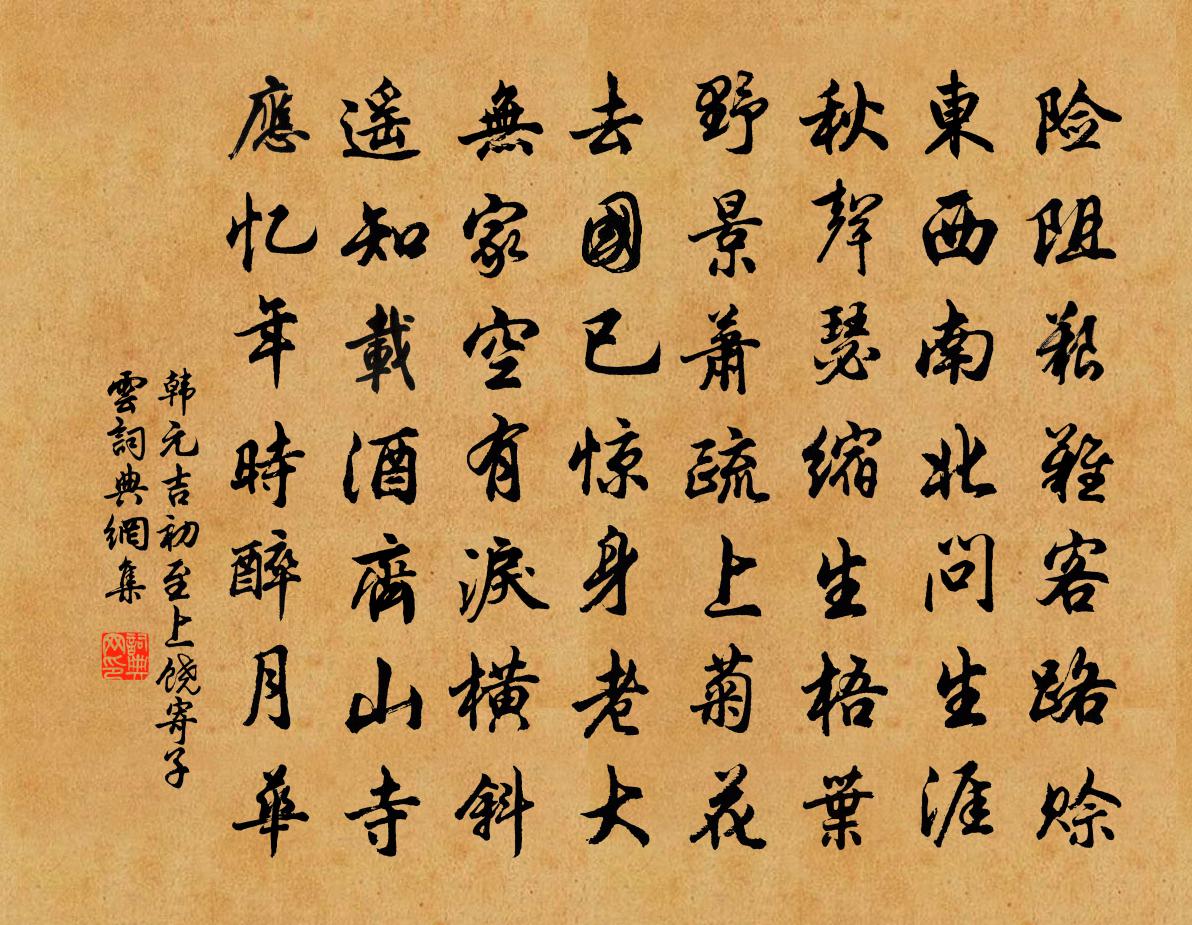 险阻艱難客路赊
東西南北問生涯
秋聲瑟缩生梧葉
野景蕭疏上菊花
去國已惊身老大
無家空有淚橫斜
遥知載酒齊山寺
應忆年時醉月華
韩元吉初至上饶寄子
雲詞典網集
詞典
网印